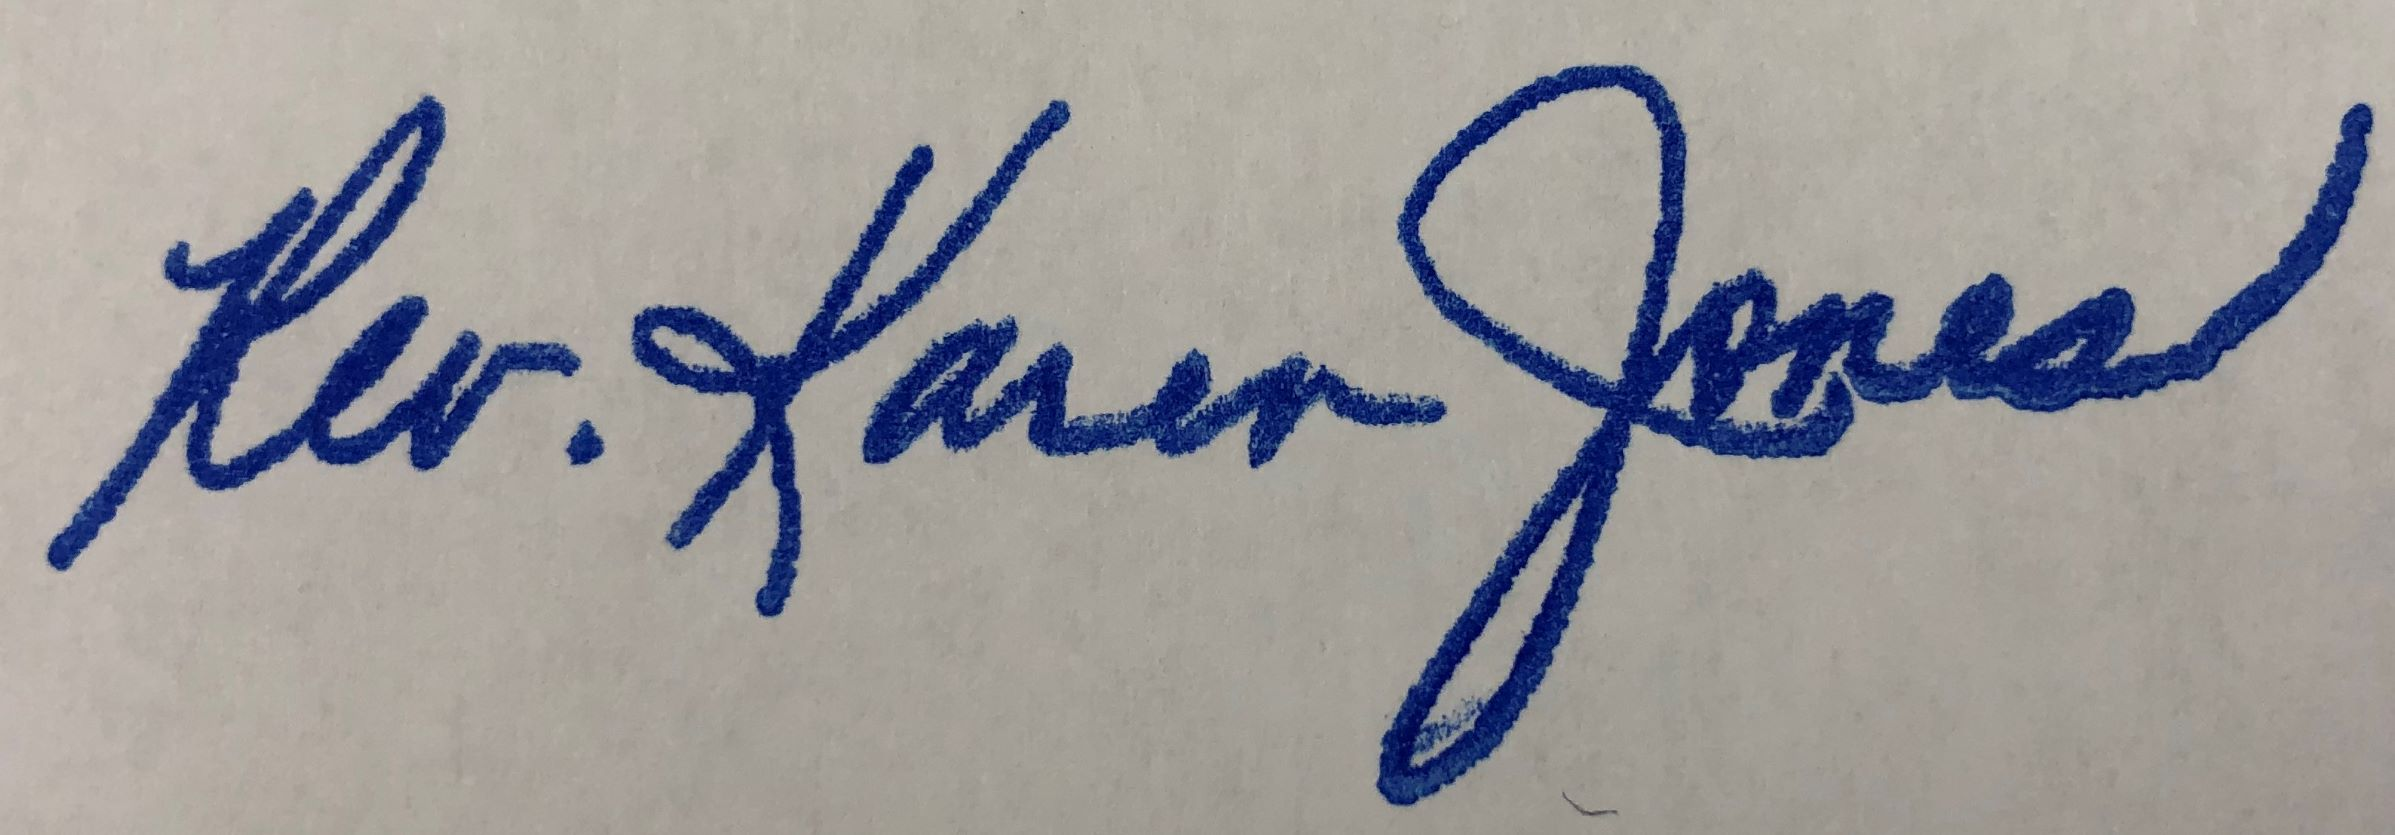 Rev. Karen Jones